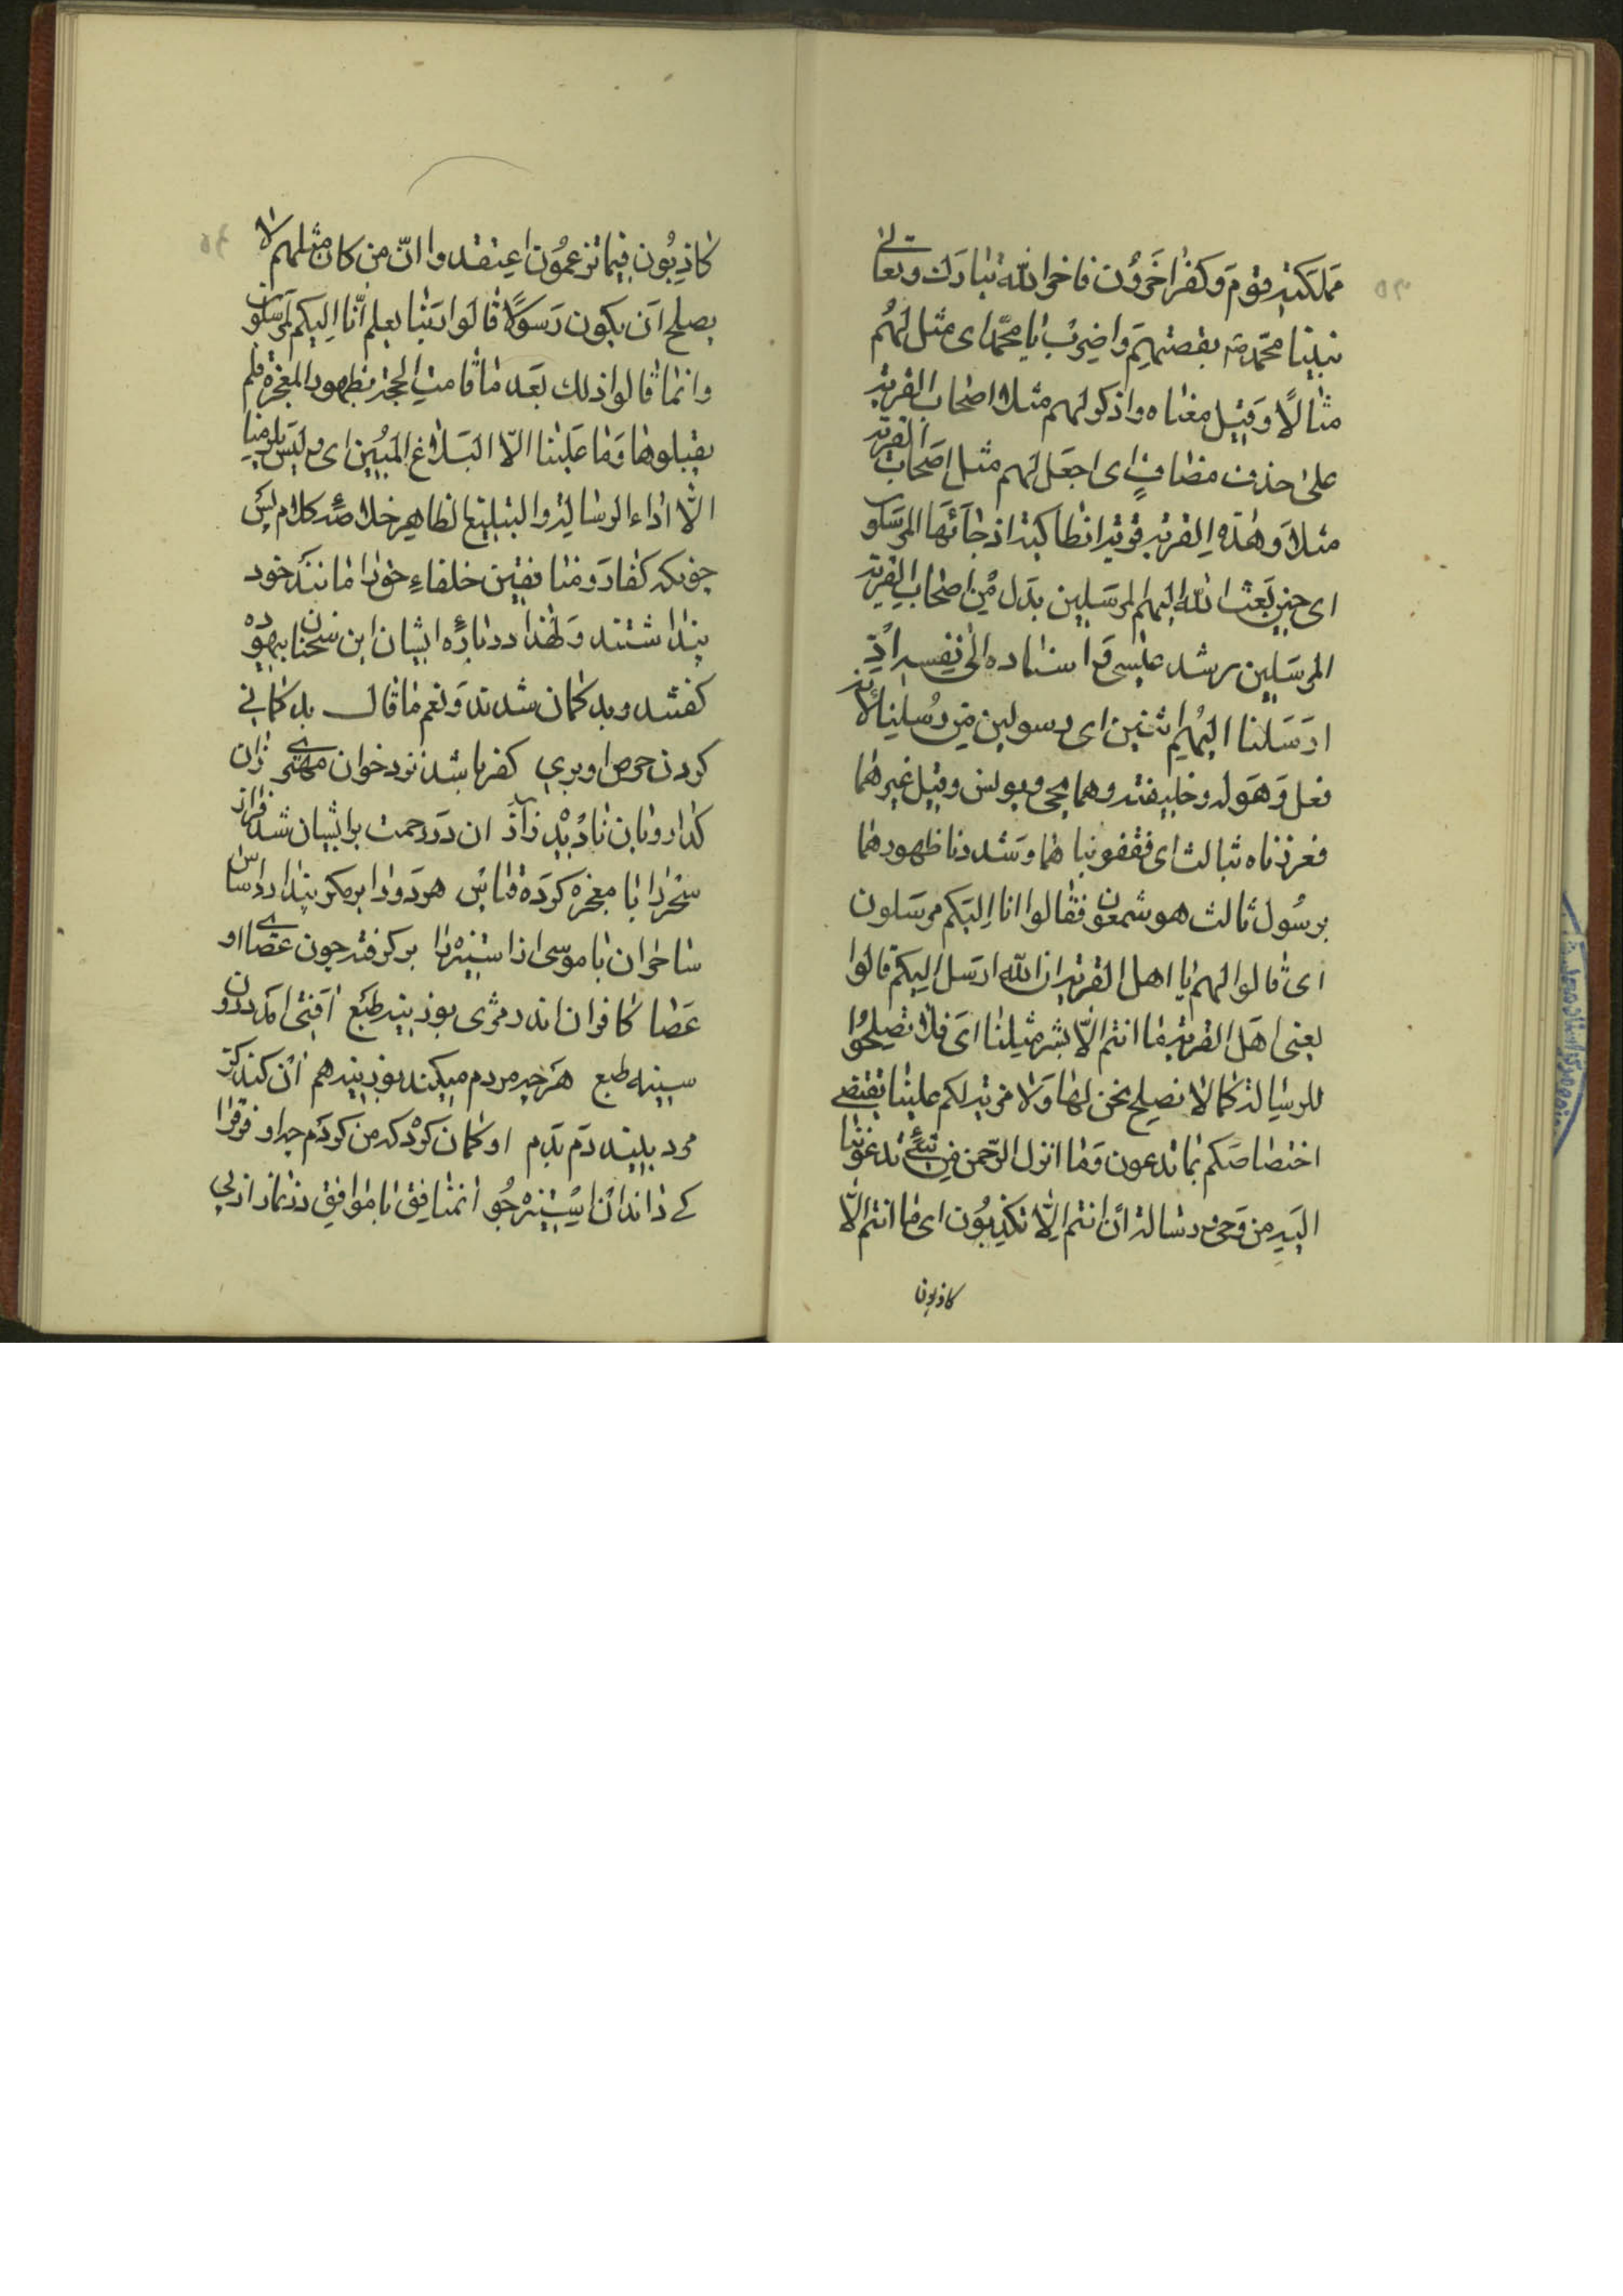 مملکته قوم و کفر اخرون فاخبر الله تبارک وتعالی
نبینا محمد ص بقصتهم واضرب یا محمد ای مثل لهم
مثالا وقیل معناه واذکر لهم مثلا اصحاب القریة
علی حذف مضاف ای اجعل لهم مثل اصحاب القریة
مثلا وهذه القریة قریة انطاکیة اذ جائها المرسلون
ای حین بعث الله الیهم المرسلین بدل من اصحاب القریة
المرسلین رسل عیسی و اسناده الی نفسه اذ
ارسلنا الیهم اثنین ای رسولین من رسلنا لانه
فعل رسوله وخلیفته وهما یحیی ویونس وقیل غیرهما
فعززناه بثالث ای فقوینا هما وشددنا ظهورهما
برسول ثالث هو شمعون فقالوا انا الیکم مرسلون
ای قالوا لهم یا اهل القریة ان الله ارسل الیکم قالوا
یعنی اهل القریة ما انتم الا بشر مثلنا ای فلا تصلحوا
للرسالة کما لا نصلح نحن لها ولا مزیة لکم علینا تقتضی
اختصاصکم بما تدعون وما انزل الرحمن من شئ تدعوننا
الیه من وحی ورسالة ان انتم الا تکذبون ای ما انتم الا
کاذبون
کاذبون فیما تزعمون اعتقدوا ان من کان مثلهم لا
یصلح ان یکون رسولا قالوا ربنا یعلم انا الیکم لمرسلون
وانما قالوا ذلک بعد ما قامت الحجة بظهور المعجزة فلم
یقبلوها وما علینا الا البلاغ المبین ای ولیس یلزمنا
الا اداء الرسالة والتبلیغ الظاهر خلاصه کلام پس
چونکه کفار ومنافقین خلفاء خدا را مانند خود
پنداشتند ولهذا در باره ایشان این سخنان بیهوده
کفتند وبد کمان شدند ونعم ما قال بد کمانی
کردن حرص اوری کفر باشد نزد خوان مهتری زان
کذار وبان نادید زاد ان در رحمت بر ایشان شد فراز
سحر را با معجزه کرده قیاس هر دو را بر مکر پندارد اساس
ساحران با موسی از استیزه را بر کرفته چون عصای او
عصا کافران اندر مری بوزینه طبع آفتی آمد درون
سینه طبع هر چه مردم میکند بوزینه هم ان کند کز
مرد بیند دم بدم او کمان کرد که من کردم چو او فرق را
کی داند ان استیزه جو ان منافق با موافق در نماز از پی